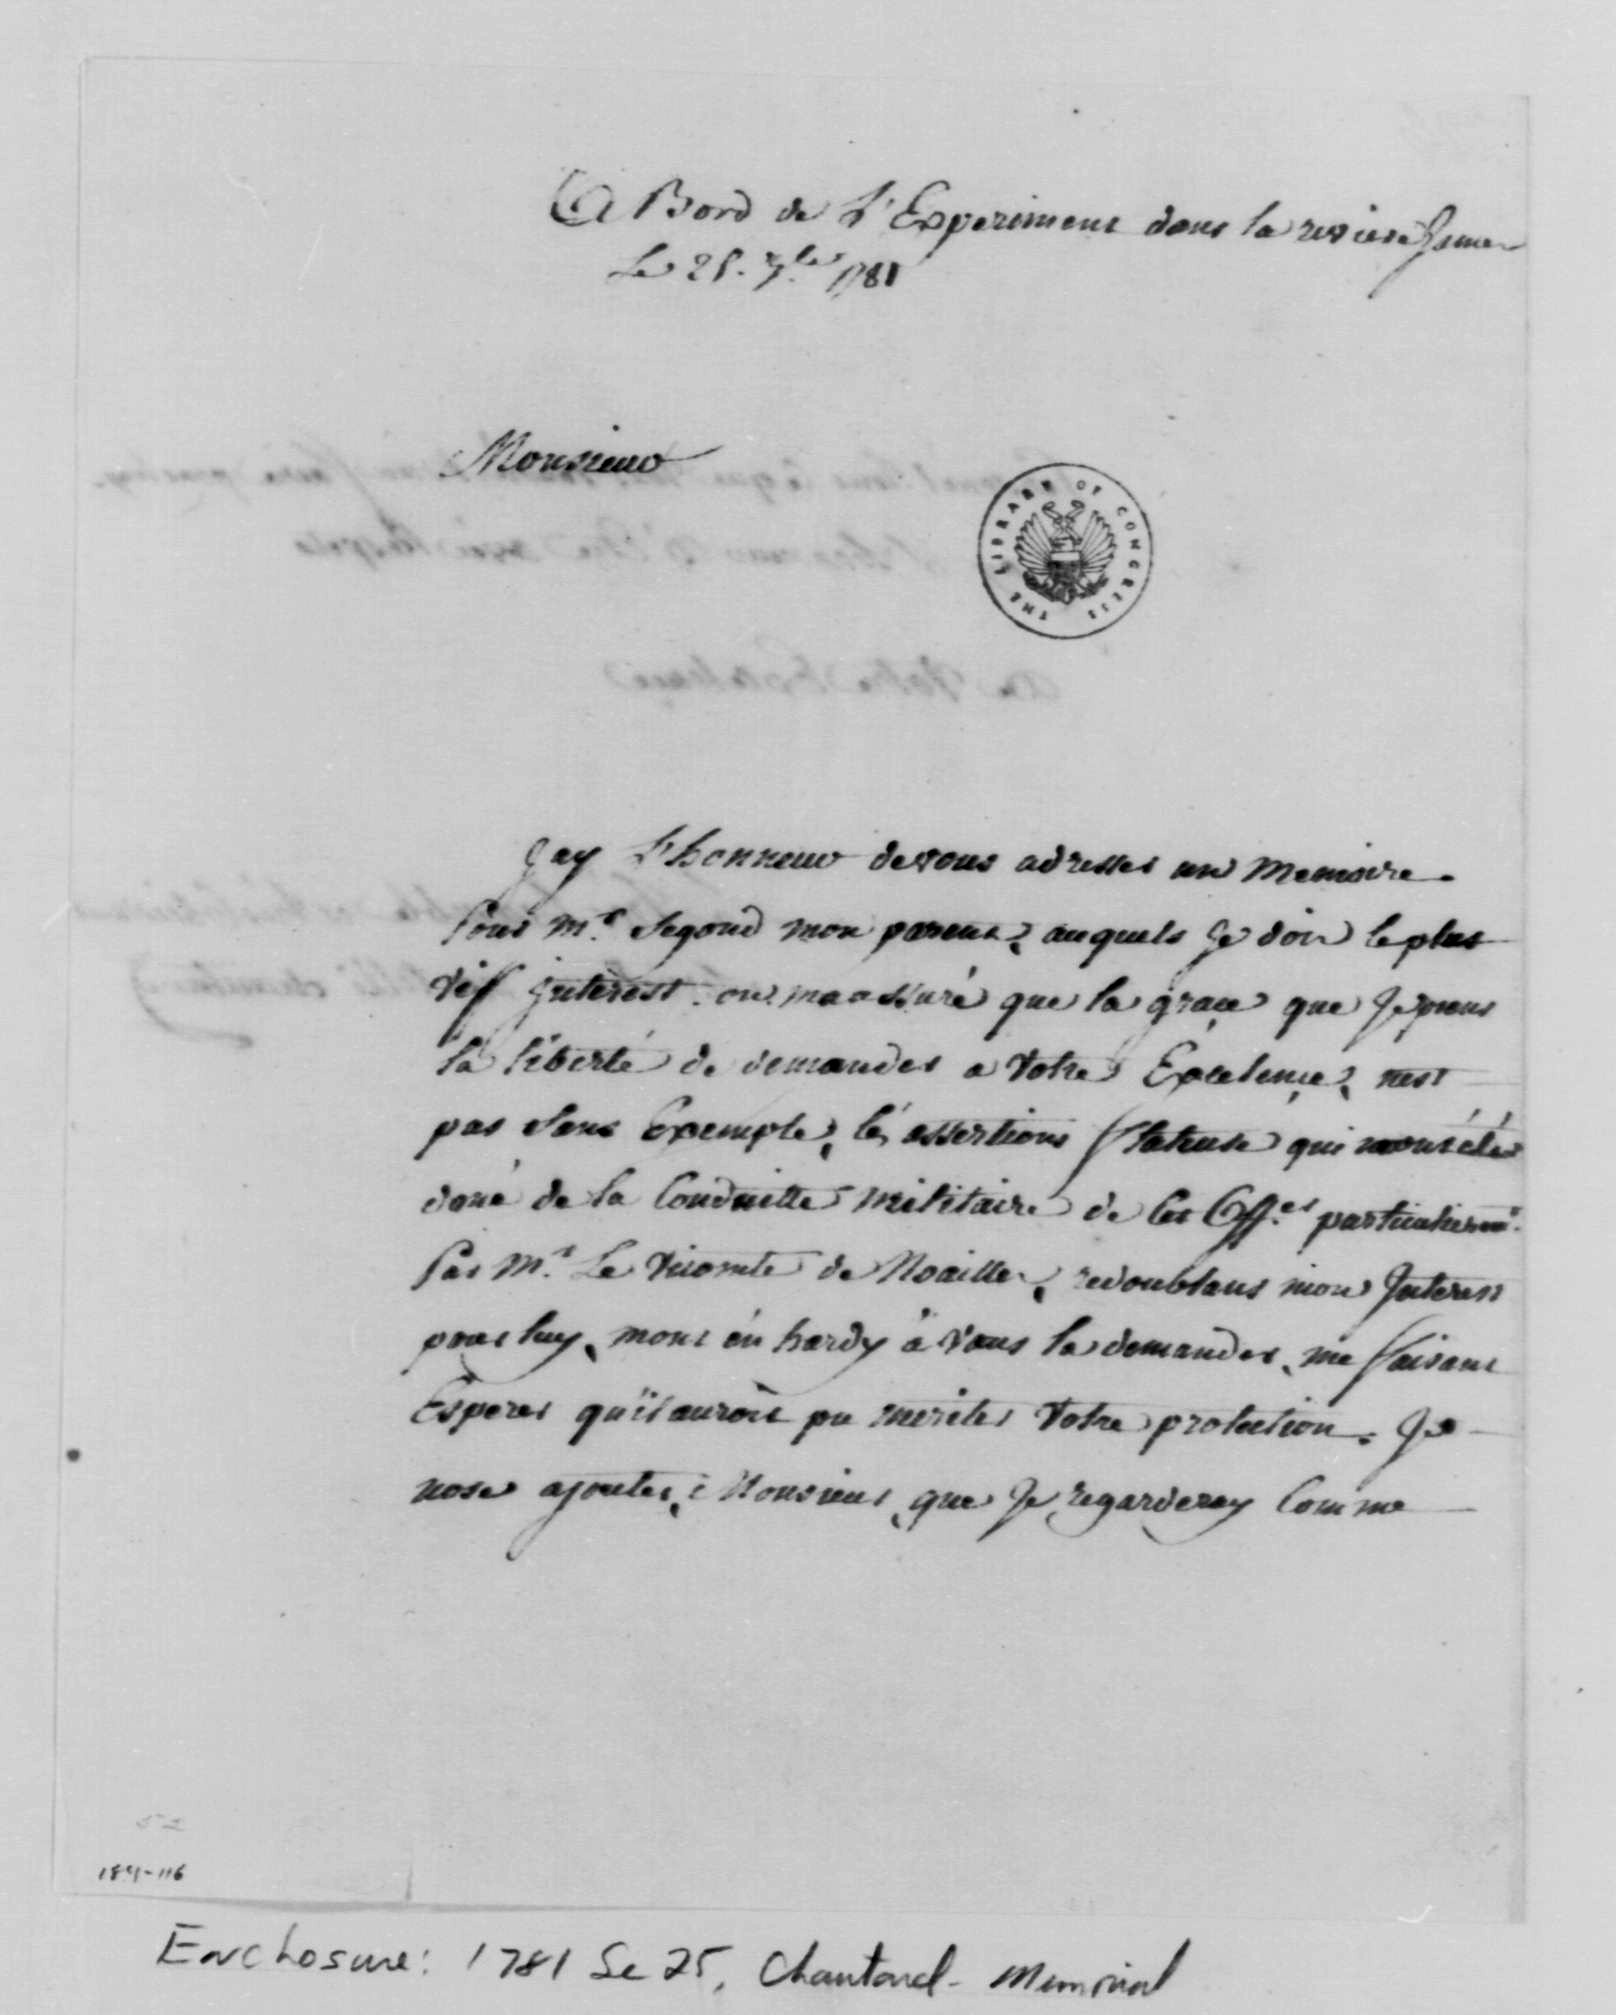 A Bord de L'Experiment dans la riviere James
Le 25. 7.bre 1781
Monsieur
THE LIBRARY OF CONGRESS
Jay L'honneur devous adresser un Memoire.
Pour Mr. Segond mon parent, auquels Je dois le plus
vif Interest. on ma assuré que la graçe que Je prens
la liberté de demander a Votre Excelençe, nest
pas sans Exemple, lés assertions flateuse qui mont étés
doné de la Conduitte militaire de Cet Off.er particulierem.t
Par Mr. Le Vicomte de Noailles, redoublant mon Interest
pour luy, mont én hardy á Vous la demander, me faisant
Esperer quil auroit pu meriter Votre protection. Je
nose ajouter, Monsieur, que Je regarderay Comme
1841-116
Enclosure: 1781 Se 25, Chantarel - Memorial